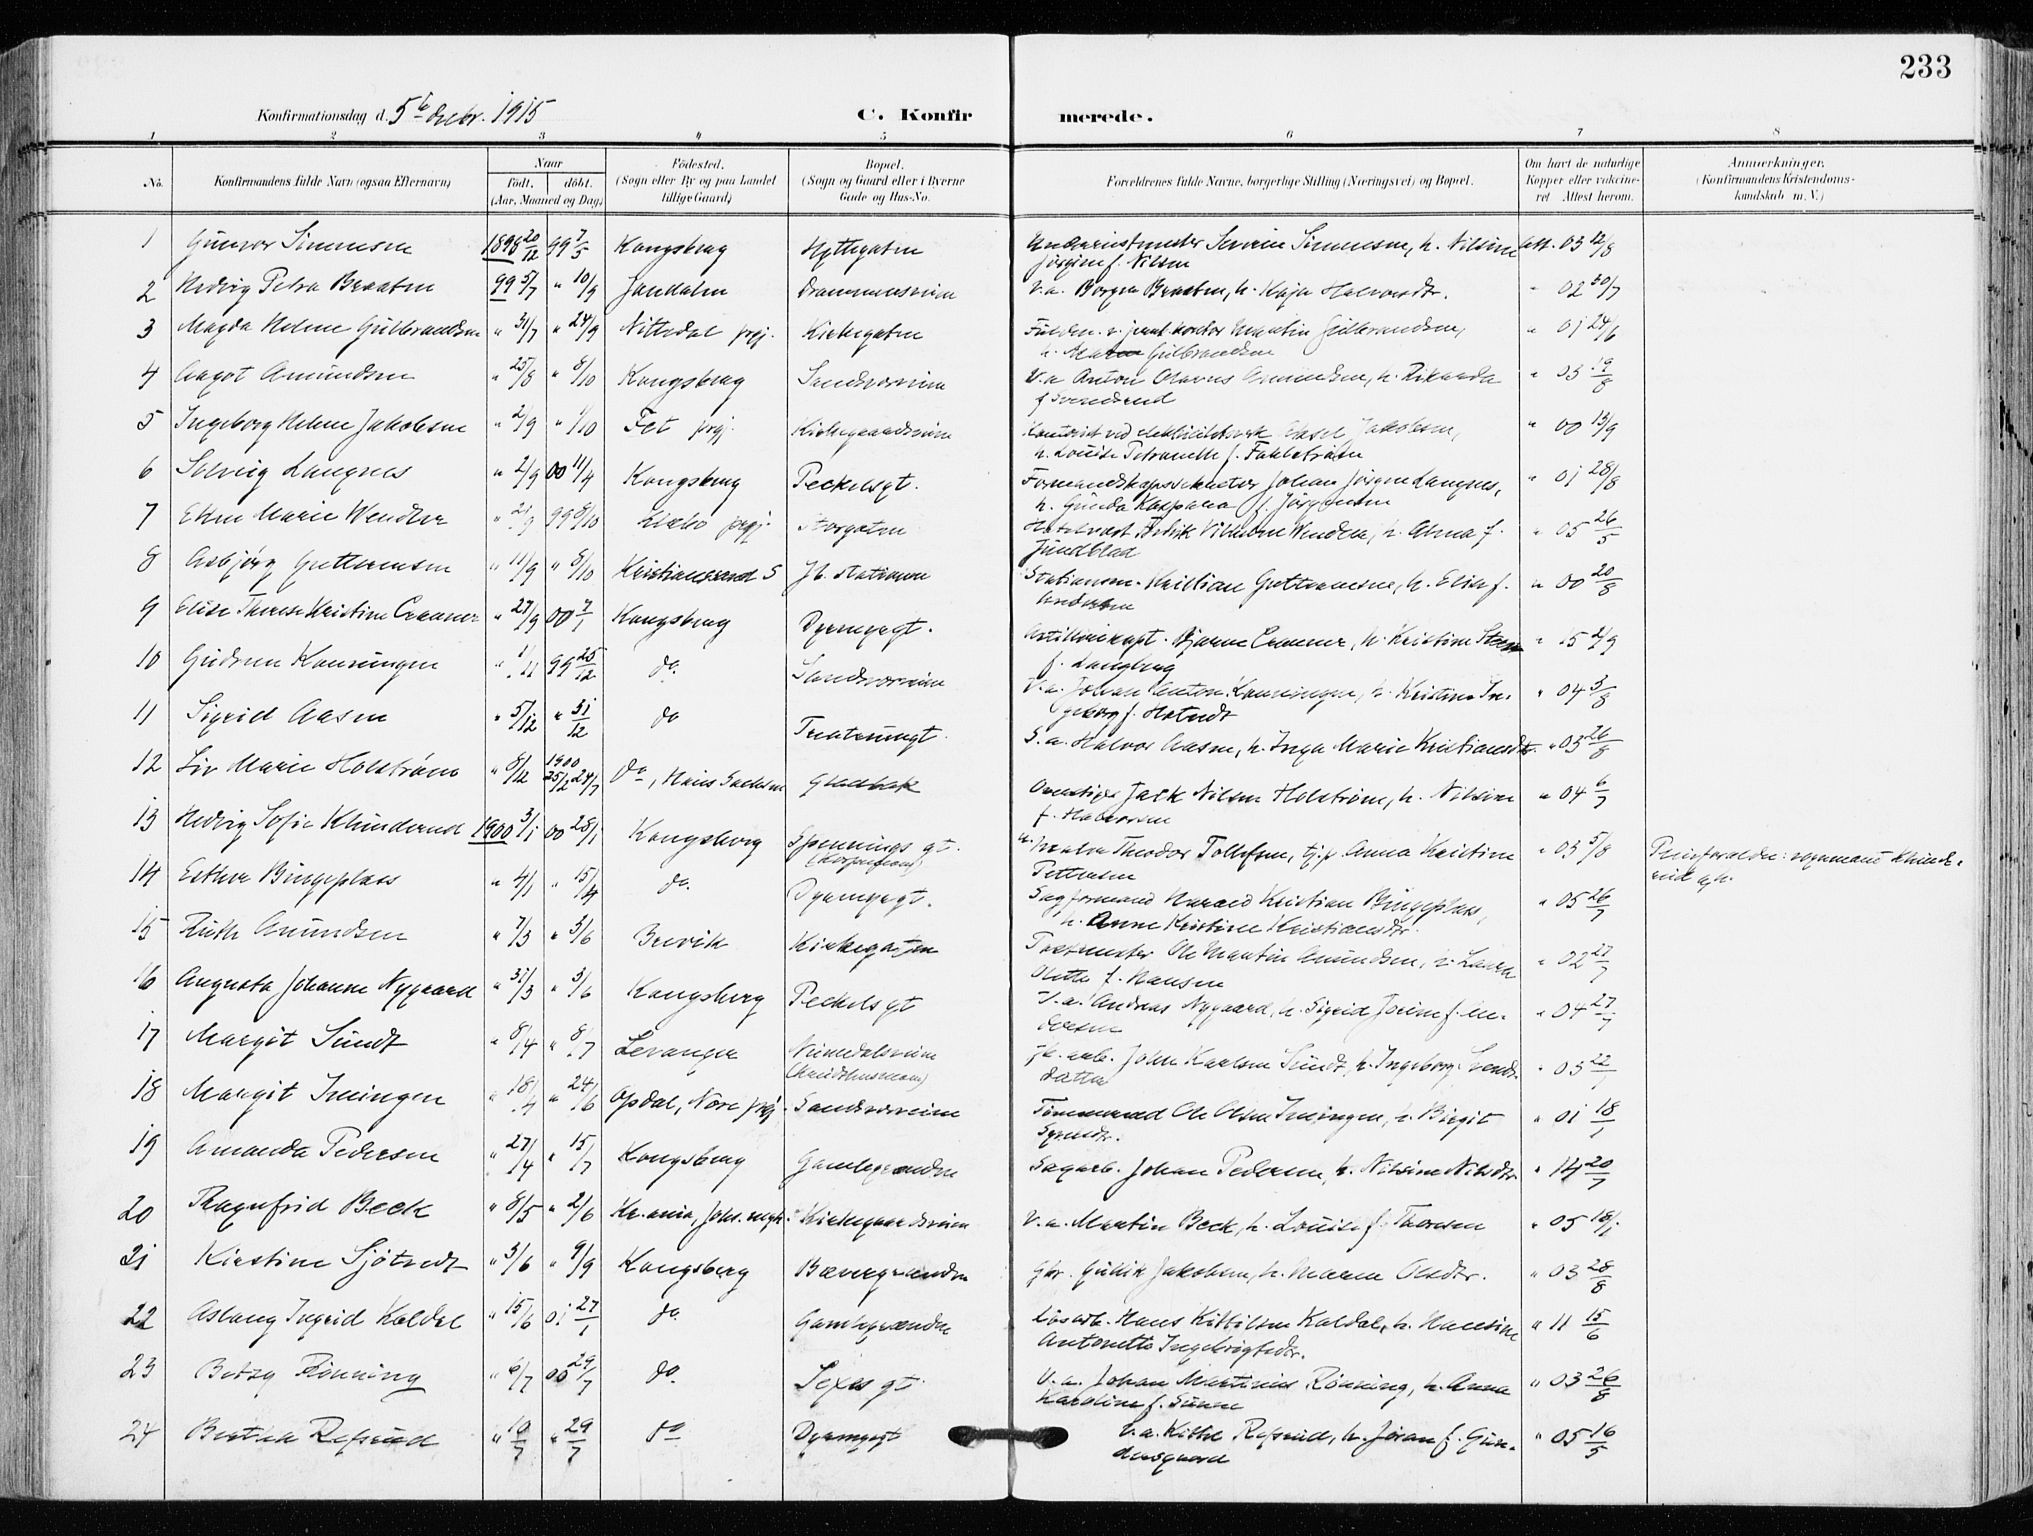 233
Konfirmationsdag d. 5te Decbr. 1915
C. Konfirmerede.
1 2 3 4 5 6 7 8
No.
Konfirmandens fulde Navn (ogsaa Efternavn)
Naar
födt. döbt.
(Aar, Maaned og Dag)
Födested.
(Sogn eller By og paa Landet
tillige Gaard)
Bopæl.
(Sogn og Gaard eller i Byerne
Gade og Hus-No.
Forældrenes fulde Navne, borgerlige Stilling (Næringsvei) og Bopæl.
Om havt de naturlige
Kopper eller vakcine-
ret Attest herom.
Anmærkninger.
(Konfirmandens Kristendoms-
kundskab m. V.)
1 Gunvor Simensen 1898 20/12 99 7/5 Kongsberg Hyttegaten Severin Simensen, h. Nilsine att. 03 12/8
Jörgine f. Nilsen
2 Hedvig Petra Braaten 99 5/7 " 10/9 Jondalen Drammensveien V.a. Borger Braaten, h. Kaja Halvorsdtr. " 02 30/7
3 Magda Helene Gulbrandsen " 31/7 " 24/9 Nittedal prgj. Kirkegaten Martin Gulbrandsen, " 01 24/6
h. Maren Gulbrandsen
4 Aagot Amundsen " 25/8 " 8/10 Kongsberg Sandsværveien V.a Anton Olavus Amundsen, h. Rikarda " 03 19/8
5 Ingeborg Helene Jakobsen " 2/9 " 1/10 Fet prgj. Kirkegaardsveien Jakobsen, " 00 13/9
h. Louise Petronelle f. Fahlström
6 Solveig Langnes " 2/9 00 11/4 Kongsberg Peckelsgt. Formandskapssekretær Johan Jörgen Langnes, " 01 28/8
h. Gunda Kaspara f. Jörgensen
7 Ellen Marie Wendler " 21/9 99 8/10 prgj. Storgaten Hotelvært Fredrik Vilhelm Wendler, h. Alma f. " 05 26/5
Lundblad
8 Asbjörg Guttormsen " 11/9 " 8/10 Kristianssand S Jb. stationen Stationsm. Kristian Guttormsen, h. Elise f. " 00 20/8
Andersen
9 Elise Therese Kristine Cranner " 27/9 00 7/1 Kongsberg Dyrmyrgt. Artillerikapt. Bjarne Cranner, h. Kristine Steen " 15 2/9
f. Langberg
10 Gudrun Konningen " 1/11 99 25/12 do. Sandsværveien V.a. Johan Anton Konningen, h. Kristine In- " 04 3/8
geborg f. Hotvedt
11 Sigrid Aasen " 5/12 " 31/12 do Tinatsnugt. S.a. Halvor Aasen, h. Inga Marie Kristiansdtr. " 03 26/8
12 Liv Marie Holström " 8/12 1900 25/2 24/7 do, Gladbak Overstiger Jack Nilsen Holström, h. Nilsine " 04 6/7
f. Halvorsen
13 Hedvig Sofie Klunderud 1900 3/1 00 28/1 Kongsberg Spennings gt. Theodor Tollefsen, tj.p. Anna Kristine " 03 5/8 Pleieforældre: vognmand Klunde-
Pettersen rud og h.
14 Esther Bingeplass " 4/1 " 15/4 do. Dyrmyrgt. Sagformand Harald Kristian Bingeplass, " 05 26/7
h. Anne Kristine Kristiansdtr.
15 Ruth Amundsen " 7/3 " 3/6 Brevik Kirkegaten Postmester Ole Martin Amundsen, h. Laura " 02 27/7
Olette f. Hansen
16 Augusta Johanne Nygaard " 31/3 " 3/6 Kongsberg Peckelsgt V.a. Andreas Nygaard, h. Sigrid Jorine f. An- " 04 27/7
dersen
17 Margit Sundt " 8/4 " 8/7 Levanger Numedalsveien Jb. arb. John Karlsen Sundt, h. Ingeborg Svends- " 03 22/1
datter
18 Margit Imingen " 18/4 " 24/6 Opdal, Nore prgj. Sandsværveien Tömmermd Ole Olsen Imingen, h. Birgit " 01 18/1
19 Amanda Pedersen " 27/4 " 15/7 Kongsberg Gamlegrænden Sagarb. Johan Pedersen, h. Nilsine Nilsdtr. " 14 20/7
20 Ragnfrid Beck " 8/5 " 2/6 Kr.ania, Joh. mgh. Kirkegaardsveien V.a. Martin Beck, h. Louise f. Thoresen " 05 18/1
21 Kirstine Sjötvedt " 3/6 " 9/9 Kongsberg Bævergrænden Gbr. Gullik Jakobsen, h. Maren Olsdtr. " 03 28/8
22 Aslaug Ingrid Koldal " 15/6 01 27/1 do. Gamlegrænden Lösarb. Hans Kittilsen Koldal, h. Hansine " 11 15/6
Antonette Ingebrigtsdtr.
23 Betzy Rönning " 6/7 00 29/7 do. Sexes gt. V.a. Johan Martinius Rönning, h. Anna " 03 26/8
Karoline f. Simen
24 Borthe Refsrud " 10/7 " 29/7 do Dyrmyrgt V.a. Kittil Refsrud, h. Jöran f. Gun-
densgaard " 05 16/5